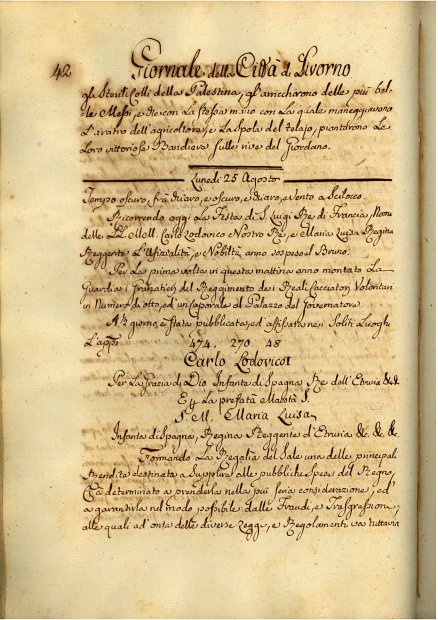 42 Giornale della Città di Livorno
gli Sterili Colli della Palestina, gl'arricchirono delle più bel-
le Messi, e che con la stessa mano con la quale maneggiavano
l'aratro dell'agricoltore, e la spola del telajo, piantarono le
loro vittoriose Bandiere sulle rive del Giordano.
Lunedì 25 Agosto
Tempo oscuro, fra chiaro, e oscuro, e chiaro, e vento a Scilocco.
Ricorrendo oggi la Festa di S. Luigi Re di Francia, Nome
delle LL. MM. Carlo Lodovico Nostro Re, e Maria Luisa Regina
Reggente L'Ufizialità, e Nobiltà anno sospeso il Bruno.
Per la prima volta in questa mattina anno montato la
Guardia i Granatieri del Reggimento dei Reali Cacciatori Volontari
in Numero di otto, ed un Caporale al Palazzo del Governatore.
A giorno, è stata pubblicata, ed affissata nei Soliti Luoghi
L'app.
474. 270 48
Carlo Lodovico I
Per La Grazia di Dio Infante di Spagna Re dell'Etruria &c. &c.
E per La prefata Maestà S.
S. M. Maria Luisa
Infanta di Spagna, Regina Reggente d'Etruria &c. &c. &c.
Formando La Regalia del Sale una delle principali
Rendite destinate a Supplire alle pubbliche Spese del Regno,
Ha determinato a prenderla nella più seria considerazione, ed'
a garantirla nel modo possibile dalle Fraudi, e Trasgressioni,
alle quali ad onta delle diverse Leggi, e Regolamenti va tuttavia